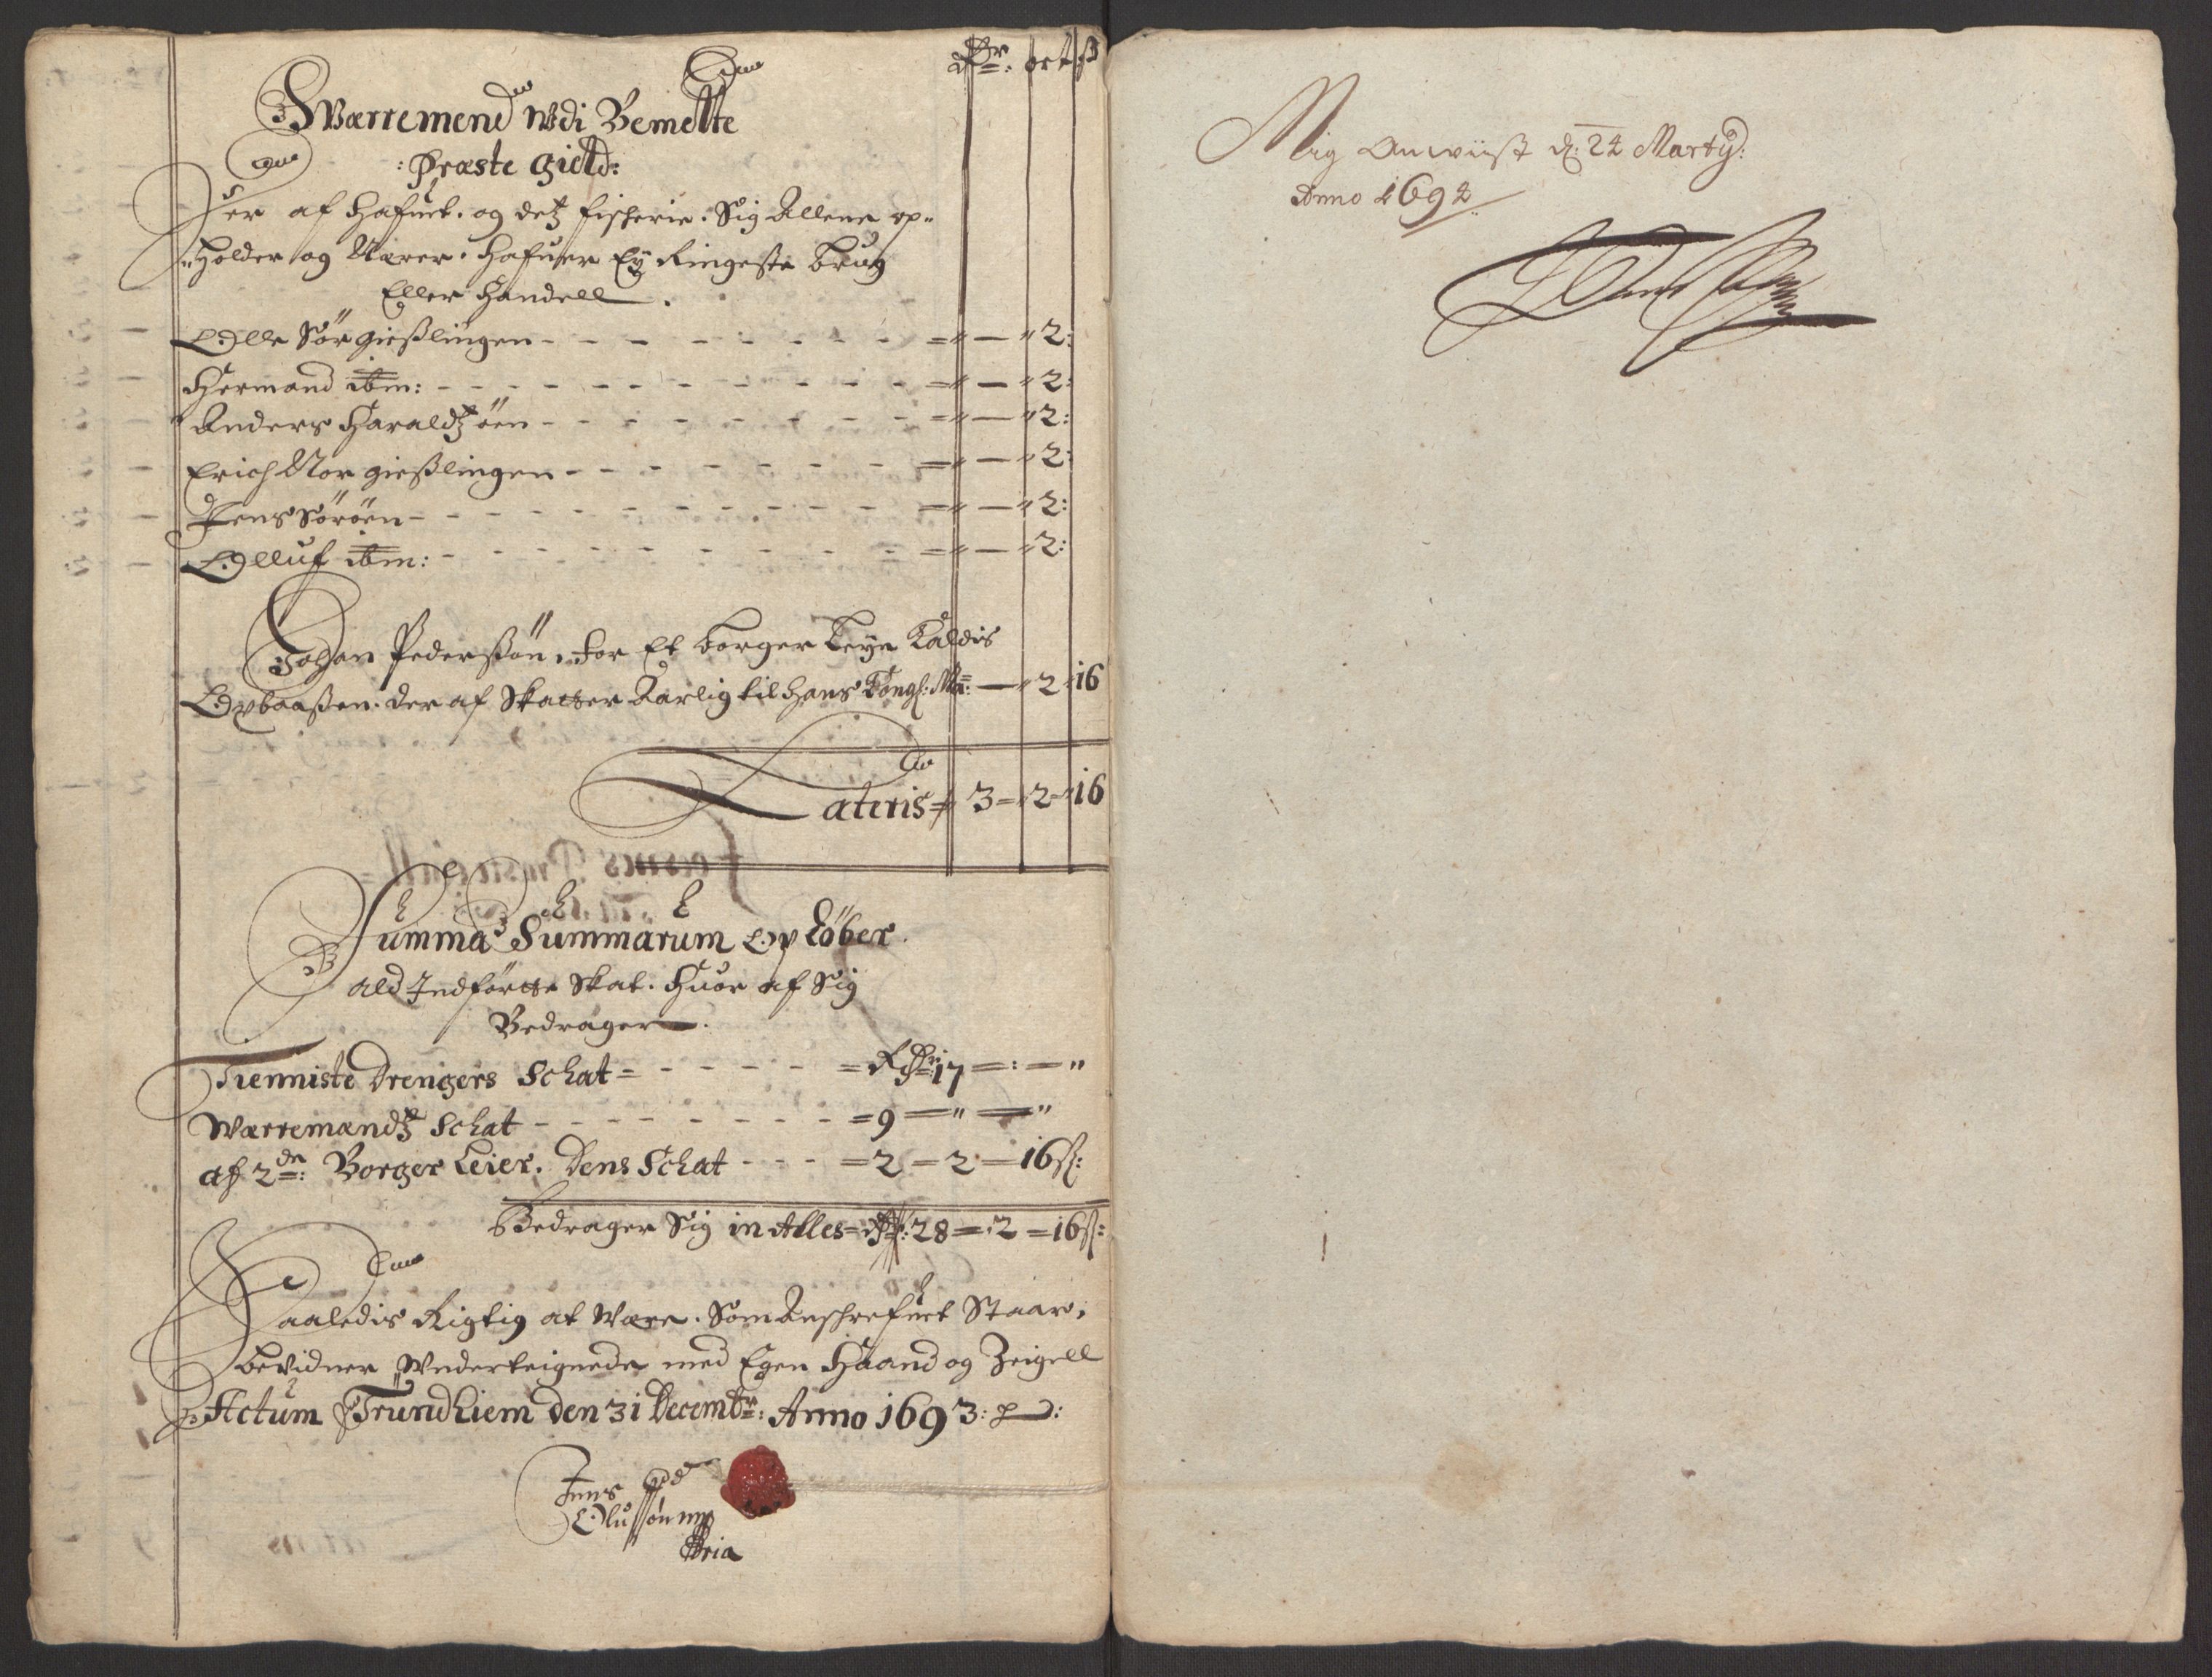 Rdr: ort ß
Warremend Udi Bemelte
: Præste gield:
Der af Hafuet. og detz fischerie. Sig Allene op-
holder og Nærer. Hafuer Ey Ringeste brug
Eller Handell.
Olle Sør gießlingen - - - - = " — " 2:
Hermand ibm: - - - - = " — " 2:
Anders Haraldtzøen - - - - = " — " 2:
Erich Nor gießlingen - - - - = " — " 2:
Jens Sørøen - - - - = " — " 2:
Olluf ibm: - - - - = " — " 2:
Johan Pederßøn, for Et borger Leye Kaldis
Opbaaßen. der af Skatter Aarlig til Hans Kongl: Ma: — " 2 - 16
Lateris = 3 = 2 - 16
Summa Summarum Opløber
ald Indførtte Skat. Huor af Sig
Bedrager.
Tienniste Drengers Schat = - - - - = Rdr: 17 = : — "
Warremandtz Schat - - - - = 9 — " — "
af 2de: Borger Leier. Dens Schat - - - = 2 — 2 — 16 ß:
Bedrager Sig in Alles = Rdr: 28 = 2 = 16 ß:
Saaledis Rigtig at Være. Som Anschrefuet Staar,
bevidner Underteignede med Egen Haand og Zeigell
Actum Trundhiem den 31 Decembr: Anno 1693:
Jens
Olufssøn mp
pria
Mig Anwiist d: 24 Marty:
Anno 1694